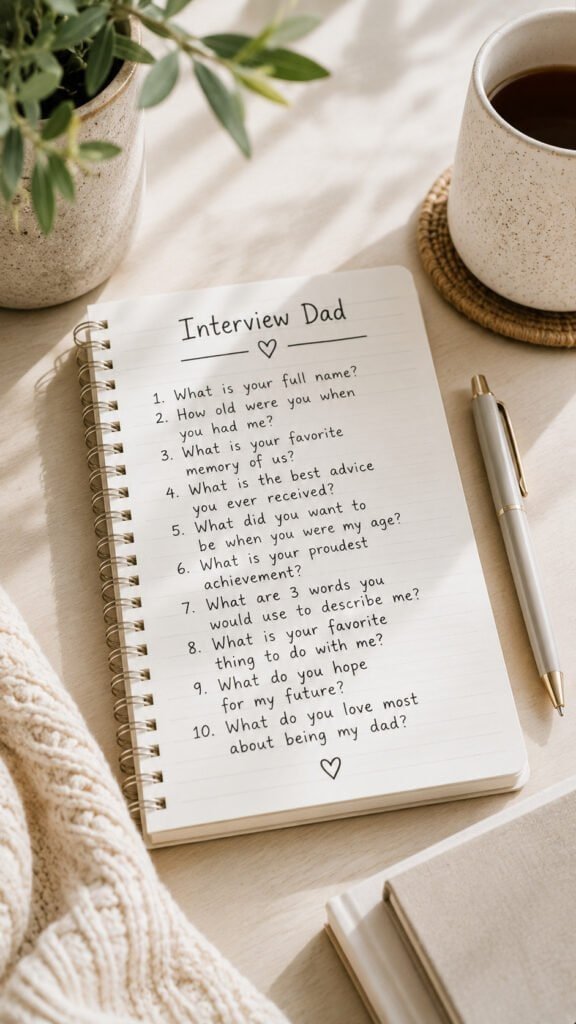 Interview Dad
1. What is your full name?
2. How old were you when
you had me?
3. What is your favorite
memory of us?
4. What is the best advice
you ever received?
5. What did you want to
be when you were my age?
6. What is your proudest
achievement?
7. What are 3 words you
would use to describe me?
8. What is your favorite
thing to do with me?
9. What do you hope
for my future?
10. What do you love most
about being my dad?